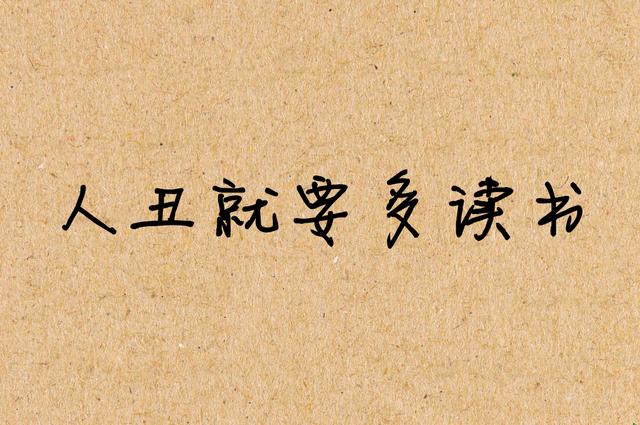 人丑就要多读书